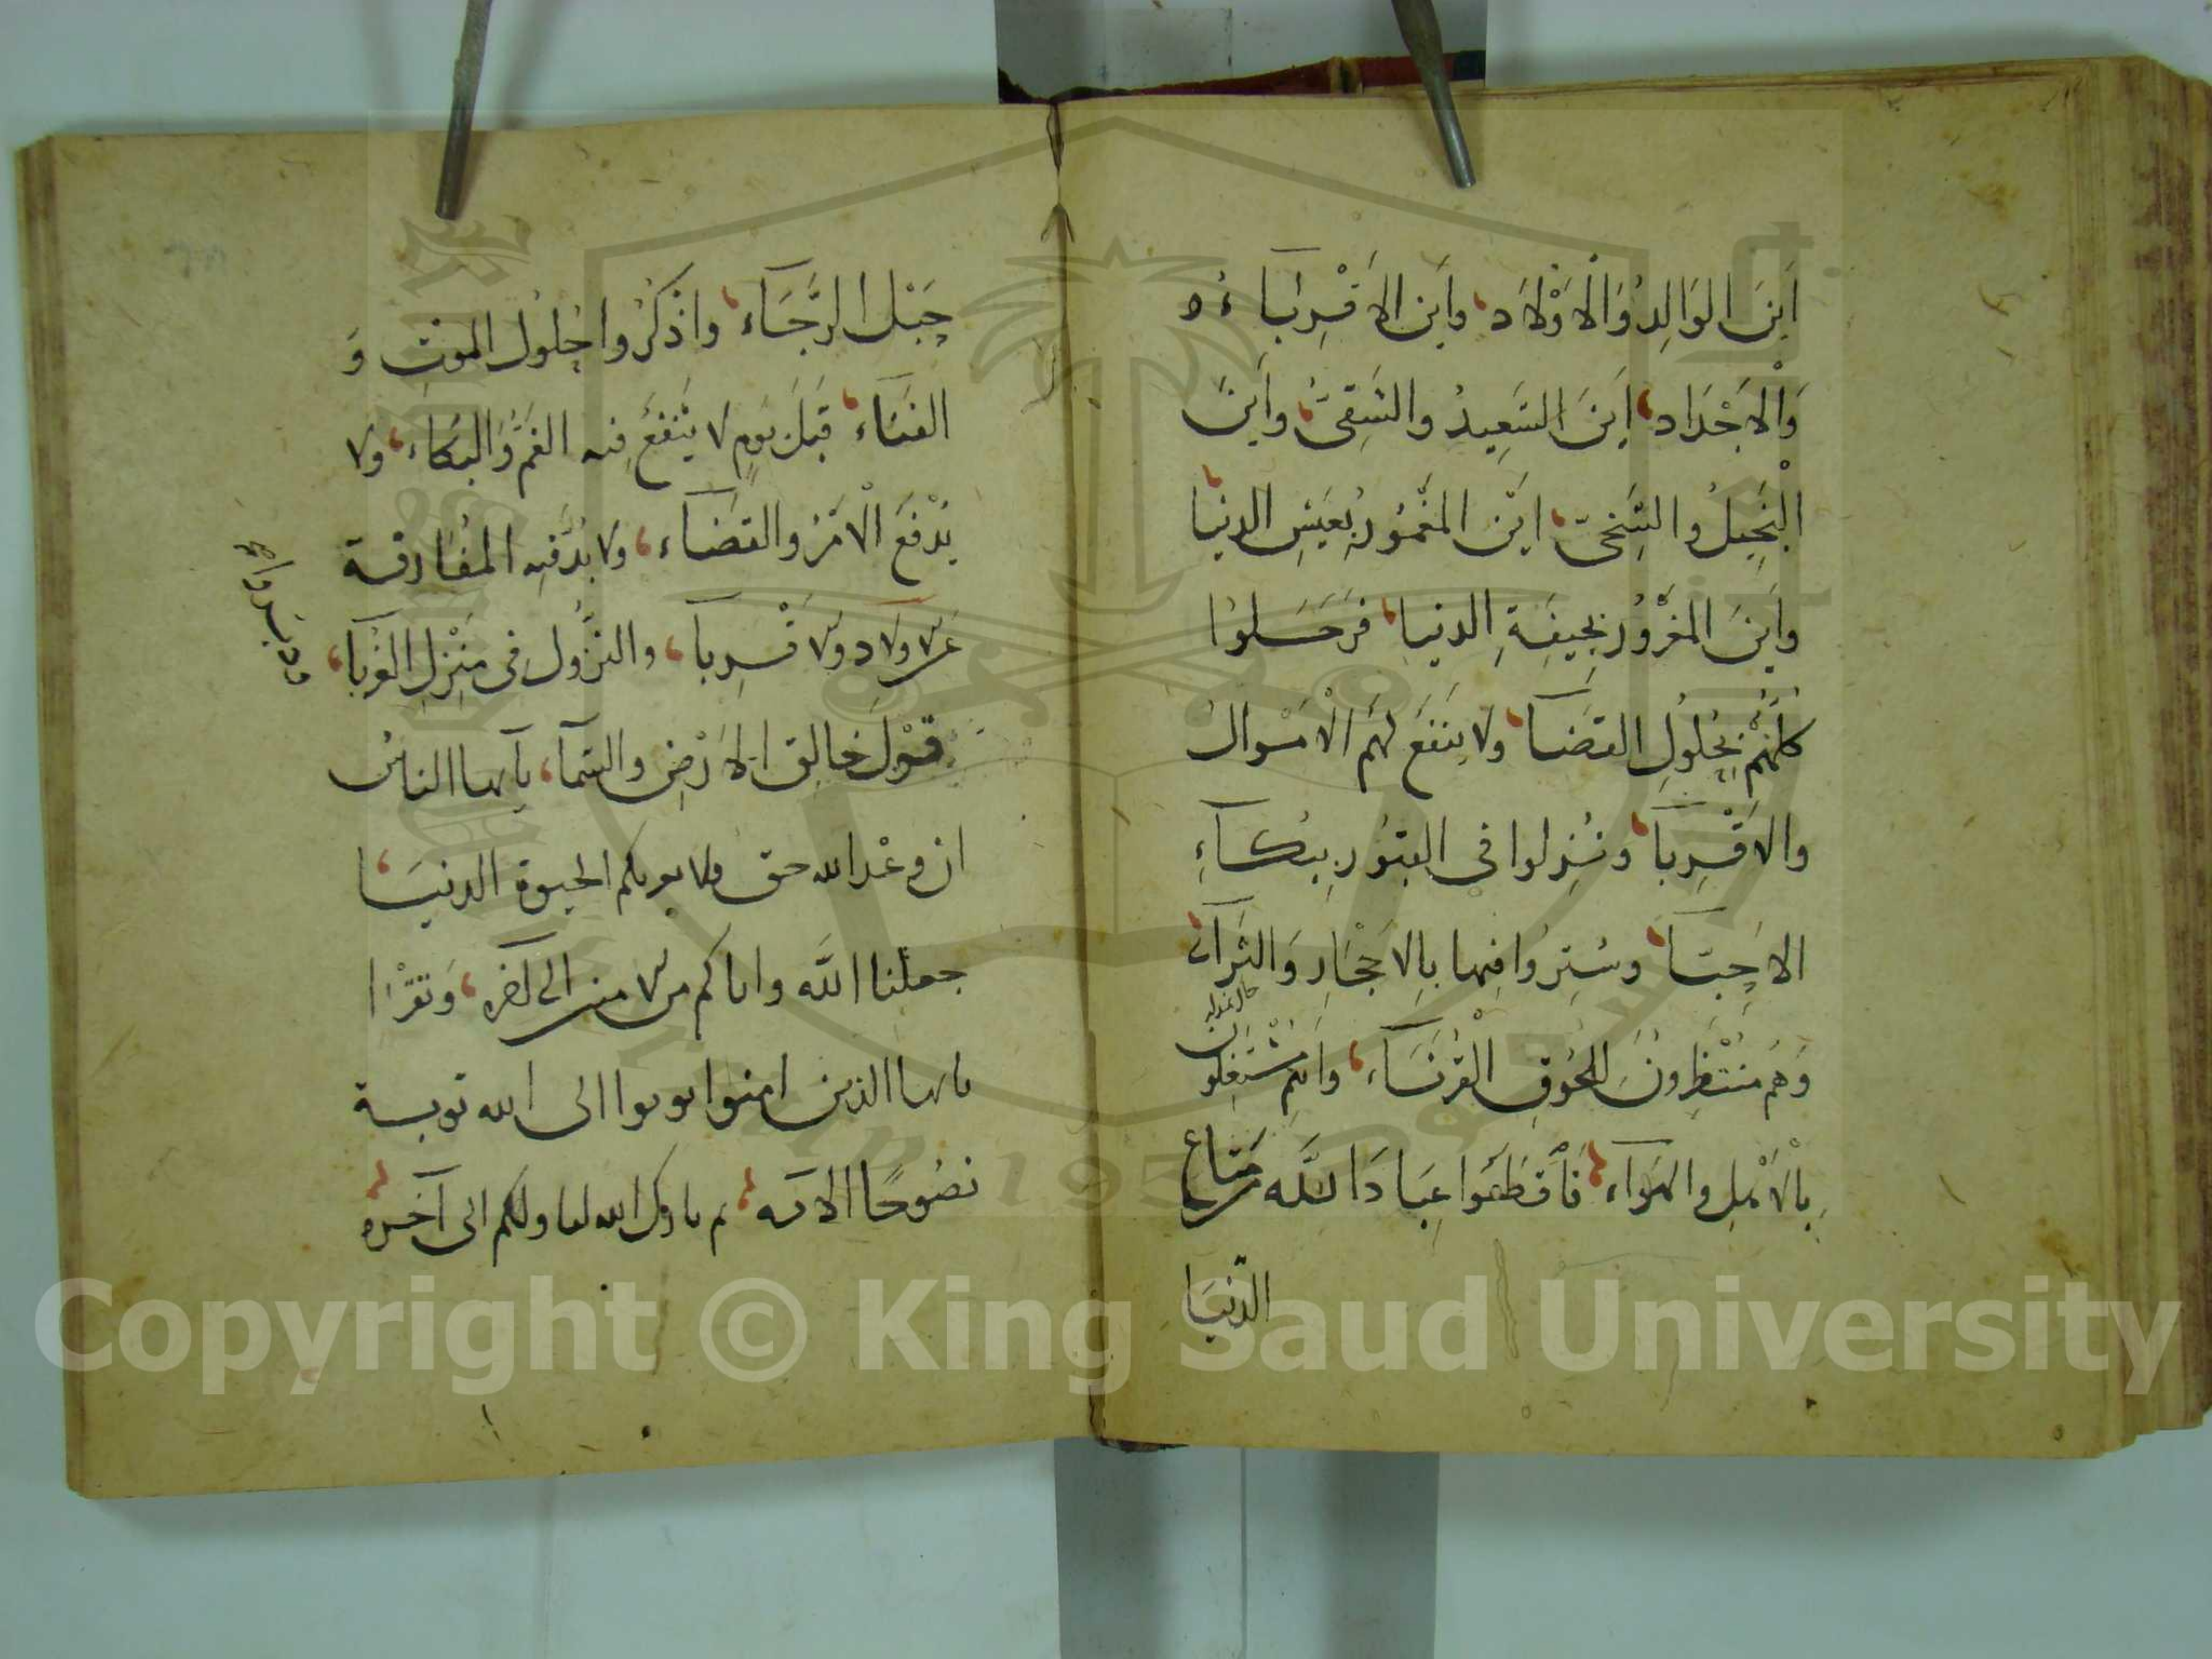 اَينَ الوَالِدُ وَالْاَوْلَاد وأَين الاَقْرِبَاءُ ه
وَالْاَجْدَاد اَينَ السَّعِيدُ والشَّقِىُّ وأَينَ
الْبَخِيلُ والسَّخِىّ اَيْنَ المَغْمُور بِعَيشِ الدنيا
وأَينَ المَغْرُور بِجِيفَةِ الدنيا فَرَحَلوُا
كلُّهُمْ بِحُلُولِ القَضَآ ولا يَنفَع لهَم الْاَمْوالُ
والاَقْرِبآ ونُزِلوا فى القبُورِ بِبُكآءِ
الاَحِبّآ وسُتِرُوا فِيها بِالاَحْجَارِ وَالتُرَآب
وَهُم مُنْتَظِرُونَ لِلحُوقِ الْقُرَنَآء وانتم مُشْتَغِلوُن
بِالْاَمَلِ والهَوَآء فَاَقطَعُوا عِبَادَ اللَّه مَتاع
الدّنيَا
حَبْلَ الرَّجَآء واذكُرُوا حُلوُل الموتِ وَ
الفَنَآء قَبَلَ يَومٍ لا يَنْفَعُ فِيه الغَمُّ وَالبُكَاء ولا
يُدْفَعَ الْاَمْرُ والقَضَآء ولا بُدَّ فيه المُفَارقة
عَن الاولاد والاقرِبآ والنزُول فى مَنْزِلِ الغُرَبآ
قَوْلَ خالِق الاَرْضِ والسمآ يآيها الناسُ
ان وعْد الله حق فلا يغرنكم الحيوة الدنيَا
جعلنا اللَّه واياكم من الامنين الى آخره وَتقْرَا
يايها الذين امنوا توبوا الى الله توبة
نصُوحًا الايه ثم بارك الله لنا ولكم الى آخره
Copyright © King Saud University